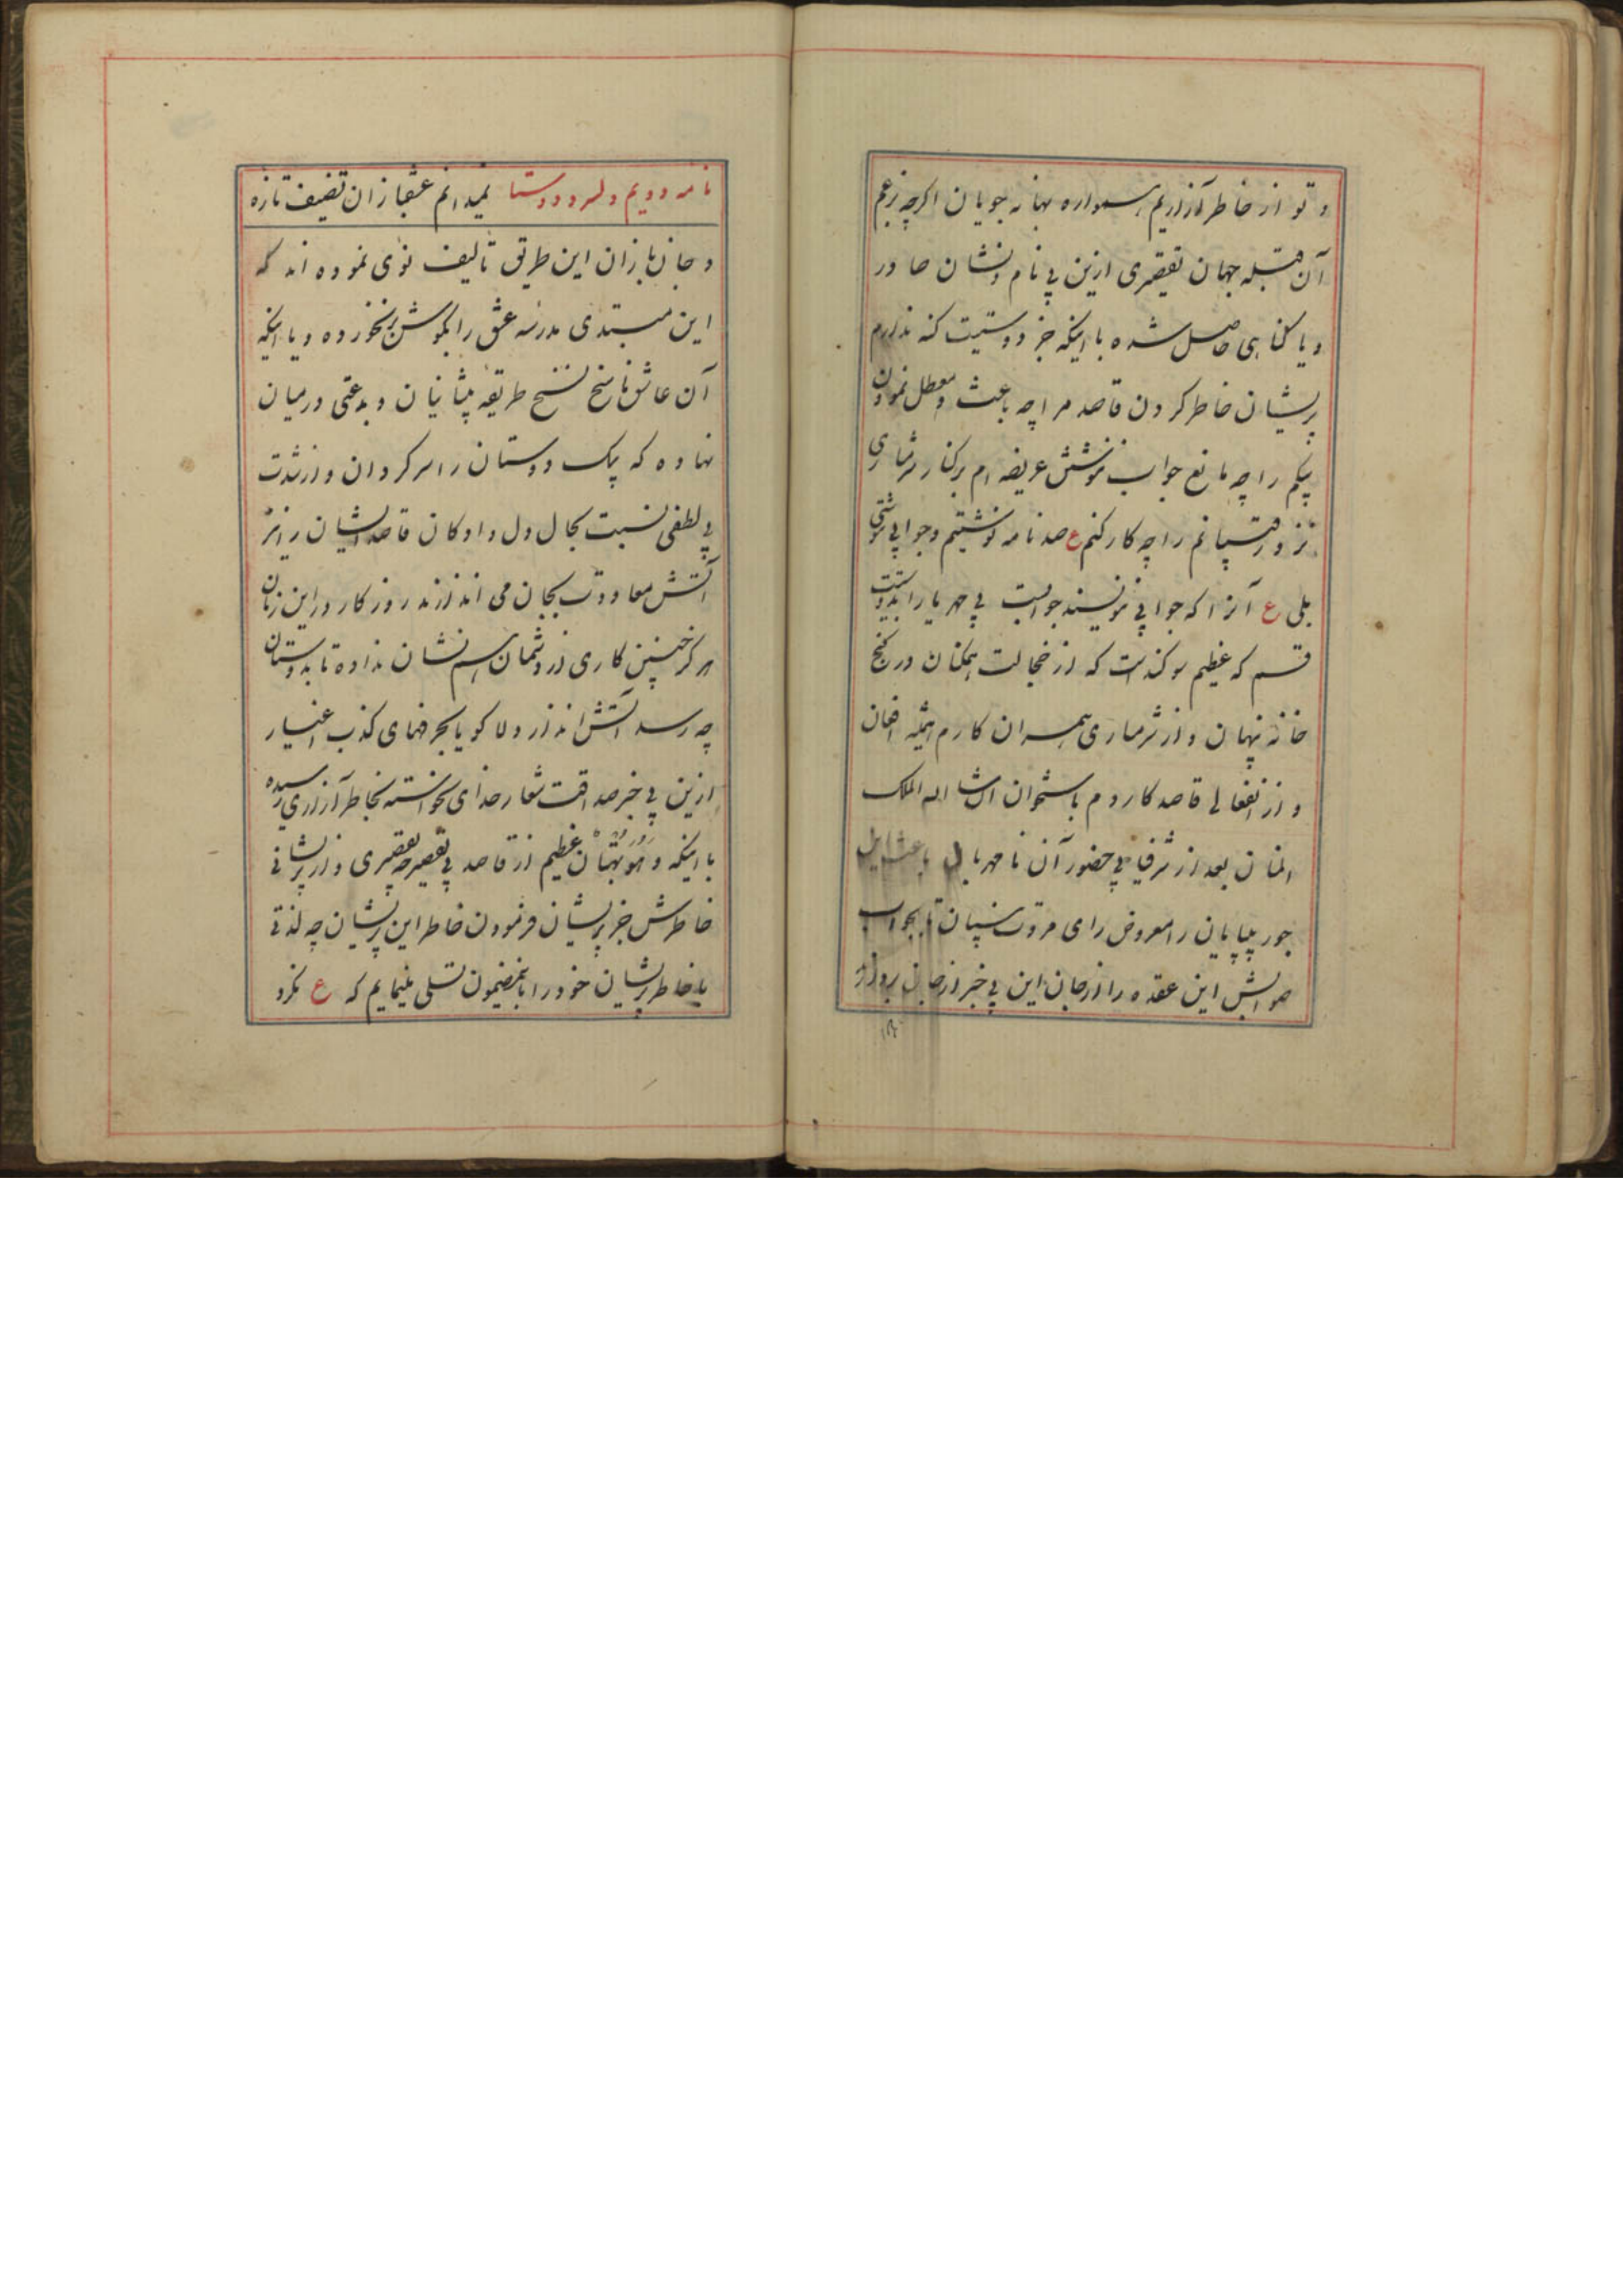 و تو از خاطر آزاریم همواره بهانه جویان اکرچه بزعم
آن قبله جهان تقصیری ازین بی نام و نشان صادر
و یا کناهی حاصل شده با اینکه جز دوستیت کنه ندارم
پریشان خاطر کردن قاصد مرا چه باعث و معطل نمودن
پیکم را چه مانع جواب ننوشتن عریضه ام برکنار شرمساری
نزد رقیبانم را چه کار کنم ع صد نامه نوشتیم و جوابی ننوشتی
بلی ع آنرا که جوابی ننویسند جوابست بی مهر یارا بدوستیت
قسم که عظیم سوکندست که از خجالت همکنان در کنج
خانه پنهان و از شرمساری همسران کارم همیشه افغان
و از انفعالی قاصد کاردم باستخوان انشا اله الملک
المنان بعد از شرفیابی حضور آن نامهربان
جور بیپایان را معروض رای مروت نسپان تا بجواب
صوابش این عقده را از جان این بی خبر از جان بردارد
نامه دویم دلبر و دوستا نمیدانم عشقبازان تصنیف تازه
و جان بازان این طریق تالیف نوی نموده اند که
این مبتدی مدرسه عشق را بکوش برنخورده و یا اینکه
آن عاشق ناسخ نسخ طریقه پیشانیان و بدعتی درمیان
نهاده که پیک دوستان را سرکردان و از شدت
بی لطفی نسبت بحال دل دادکان قاصد ایشان را نیز
آتش معاودت بجان می اندازند روزکار در این زمان
هرکز چنین کاری از دشمان هم نشان نداده تا بدوستان
چه رسد آتش اندازد دلا کویا بحرفهای کذب اغیار
ازین بی خبر صداقت شعار خدای نخواسته بخاطر آزاری رسیده
با اینکه وَهُوَ بُهْتَانٌ عظیم از قاصد بی تقصیر چه تقصیری و از پریشانی
خاطرش جز پریشان فرمودن خاطر این پریشان چه لذتی
بلی خاطر پریشان خود را باینمضمون تسلی مینمایم که ع نکرد